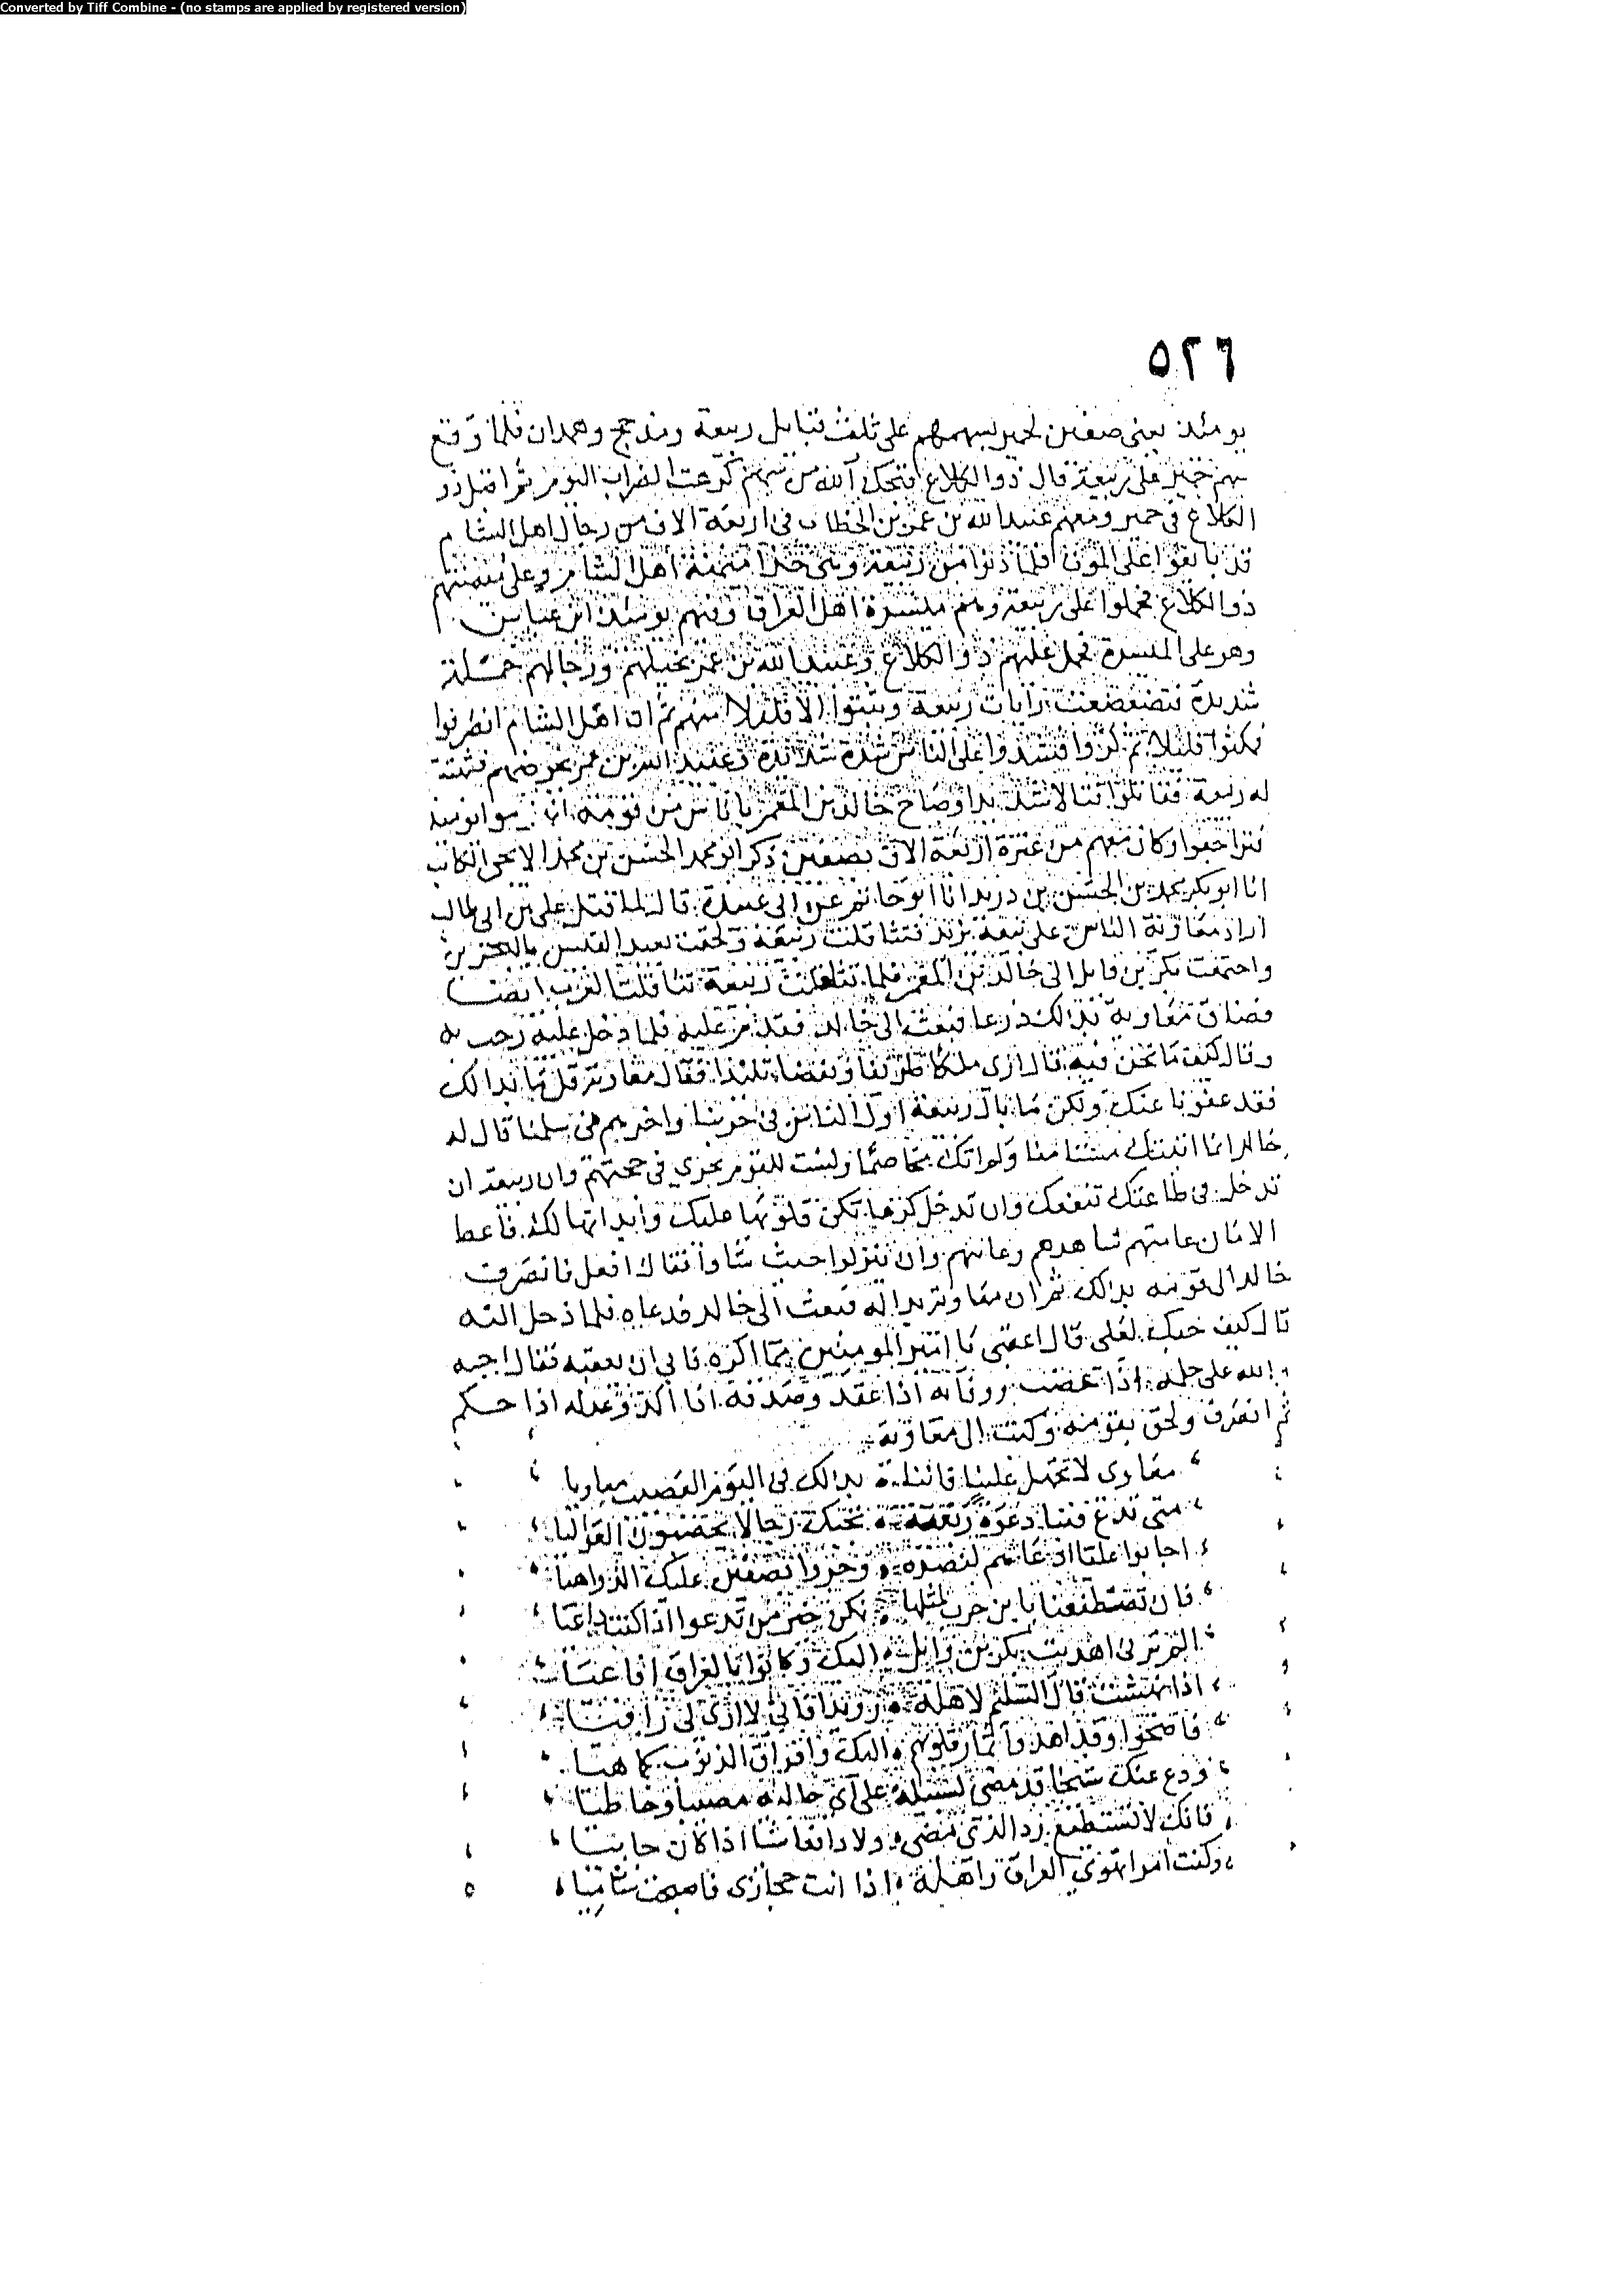 Converted by Tiff Combine - (no stamps are applied by registered version)
٥٢٦
يومئذ يعني صفين لحمير بسهمهم على ثلث قبايل ربيعة ومذحج وهمدان فلما وقع
سهم حمير على ربيعة قال ذو الكلاع قبحك الله من سهم كرهت الضراب اليوم ثم اقبل ذو
الكلاع في حمير ومعهم عبيد الله بن عمر بن الخطاب في اربعة الاف من رجال اهل الشام
قد بايعوا على الموت فلما دنوا من ربيعة وهي حذا ميمنة اهل الشام وعلى ميمنتهم
ذو الكلاع فحملوا على ربيعة وهم ميسرة اهل العراق وفيهم يومئذ ابن عباس
وهو على الميسرة فحمل عليهم ذو الكلاع وعبيد الله بن عمر بخيلهم ورجالهم حملة
شديدة فتضعضعت رايات ربيعة وثبتوا الا قليلا منهم ثم ان اهل الشام انصرفوا
فمكثوا قليلا ثم كروا فشدوا على الناس شدة شديدة وعبيد الله بن عمر يحرضهم فثبتت
له ربيعة فقاتلوا قتالا شديدا وصاح خالد بن المعمر باناس من قومه يومئذ
فتراجعوا وكان معهم من عنزة اربعة الاف بصفين ذكر ابو محمد الحسن بن محمد الايجي الكاتب
انا ابو بكر محمد بن الحسن بن دريد انا ابو حاتم عن ابي عبيدة قال لما قتل علي بن ابي طالب
اراد معاوية الناس على بيعة يزيد فتثاقلت ربيعة ولحقت بعبد القيس بالبحرين
واجتمعت بكر بن وايل الى خالد بن المعمر فلما تثاقلت ربيعة تثاقلت العرب ايضا
فضاق معاوية بذالك ذرعا فبعث الى خالد فقدم عليه فلما دخل عليه رحب به
وقال كيف ما نحن فيه قال ارى ملكا طريفا وبغضا تليدا فقال معاوية قل ما بدا لك
فقد عفونا عنك ولكن ما بال ربيعة اول الناس في حربنا واخرهم في سلمنا قال له
خالد انما اتيتك مستامنا ولم اتك مخاصما ولست للقوم بجري في حجتهم وان ربيعة ان
تدخل في طاعتك تنفعك وان تدخل كرها تكن قلوبها عليك وابدانها لك فاعط
الامان عامتهم شاهدهم وغائبهم وان ينزلوا حيث شاوا فقال افعل فانصرف
خالد الى قومه بذالك ثم ان معاوية بدا له فبعث الى خالد فدعاه فلما دخل اليه
قال كيف حبك لعلي قال اعفني يا امير المومنين مما اكره فابى ان يعفيه فقال احبه
والله على حلمه اذا غضب ووفائه اذا عقد وصدقه اذا اكد وعدله اذا حكم
ثم انصرف ولحق بقومه وكتب الى معاوية
معاوى لا تجهل علينا فاننا بذالك في اليوم العصيب معاويا
متى تدع فينا دعوة ربعية تجبك رجال يخضبون العواليا
اجابوا عليا اذ دعاهم لنصره وجروا بصفين عليك الدواهيا
فان تصطنعنا يا بن حرب لمثلها نكن خير من تدعوا اذا كنت داعيا
الم ترني اهديت بكر بن وايل اليك وكانوا بالعراق افاعيا
اذا نهشت قال السليم لاهله رويدا فاني لا ارى لي راقيا
فاصبحوا وقد اهدوا ثمار قلوبهم اليك وافراق الذنوب كما هيا
ودع عنك شيخا قد مضى لسبيله على اي حاليه مصيبا وخاطيا
فانك لا تستطيع رد الذي مضى ولا دافعا شيا اذا كان جائيا
وكنت امرا تهوى العراق واهله اذا انت حجازي فاصبحت شاميا